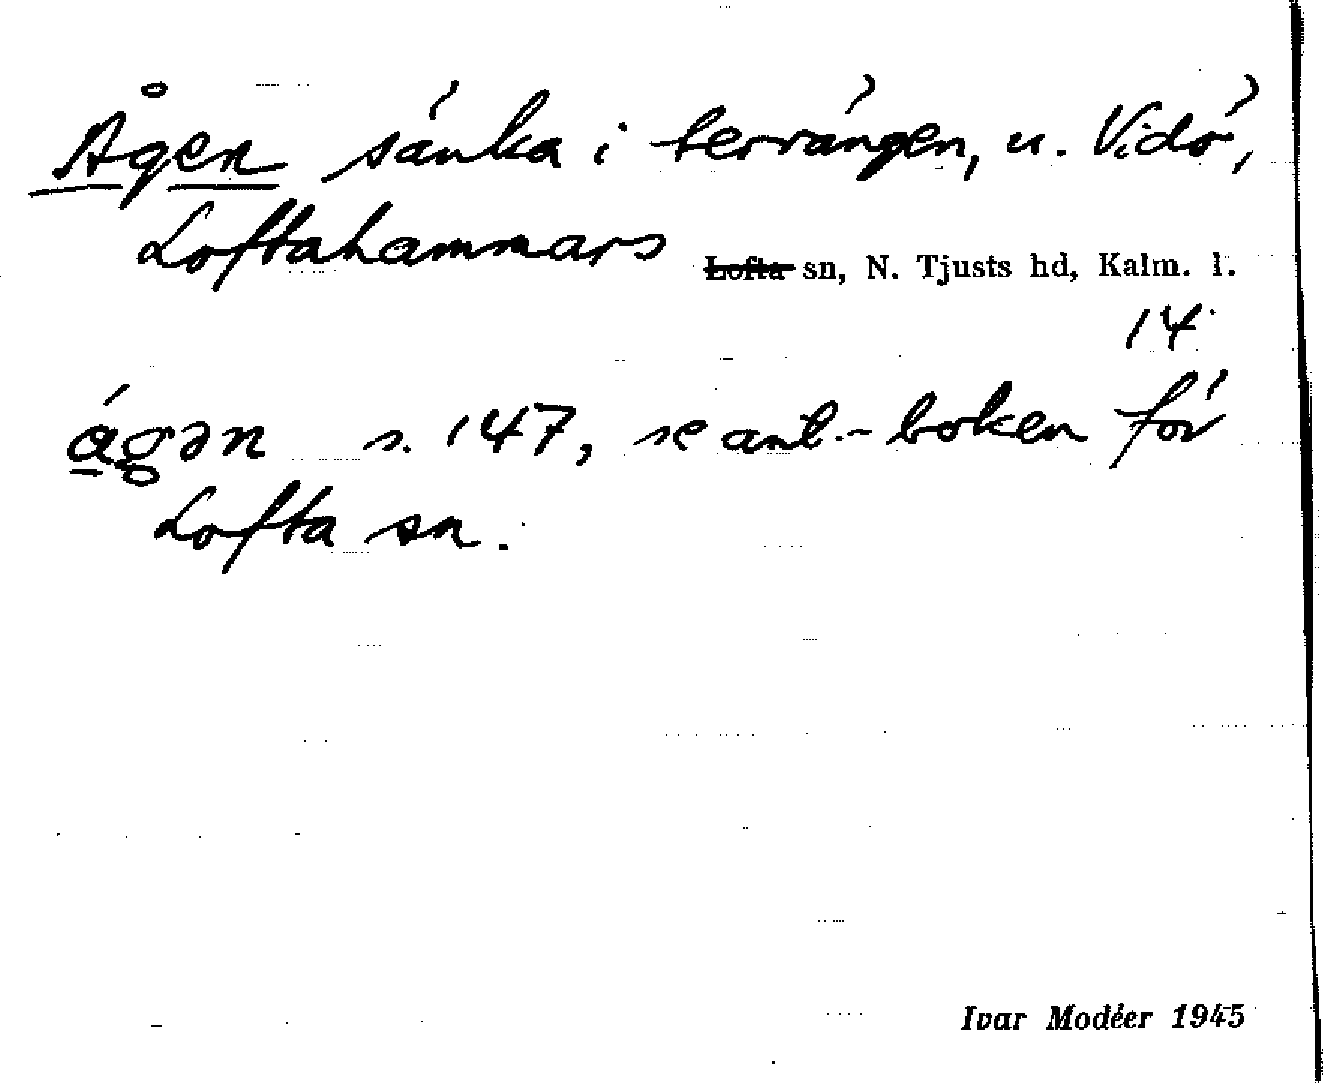 Ågen sänka i terrängen, u. Vidö,
Loftahammars ~~Lofta~~ sn, N. Tjusts hd, Kalm. l.
14
ágən s. 147, se ant.-boken för
Lofta sn.
Ivar Modéer 1945